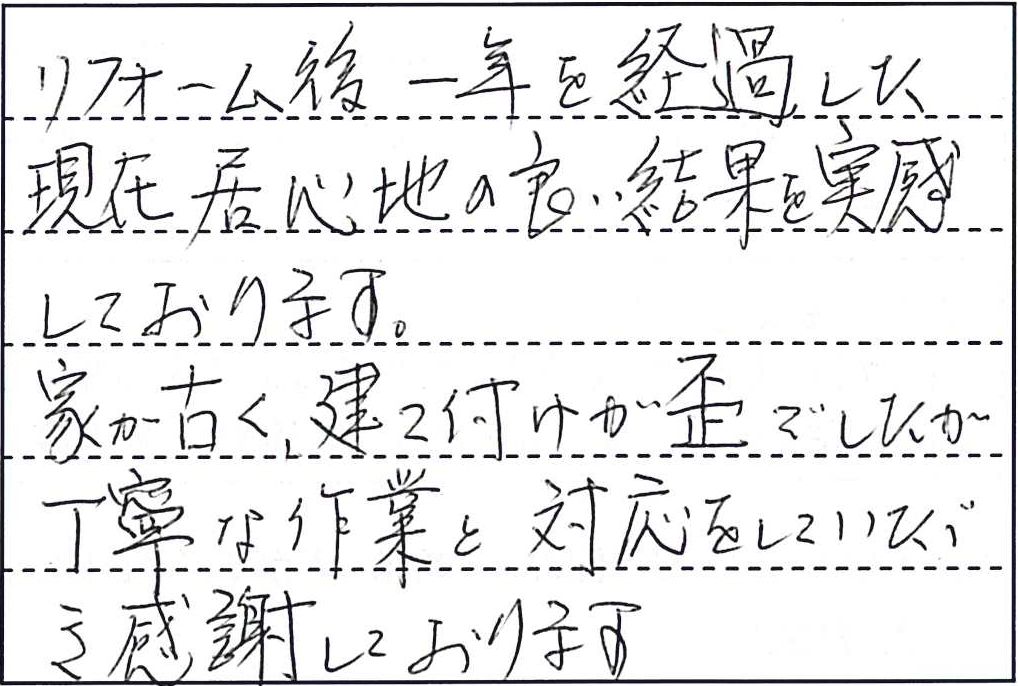 リフォーム後一年を経過した
現在居心地の良い結果を実感
しております。
家が古く、建て付けが歪でしたが
丁寧な作業と対応をしていただ
き感謝しております